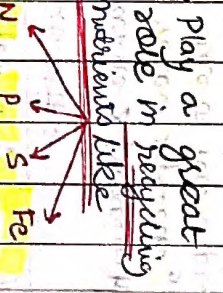 Play a great
role in recycling
nutrients like
N P S Fe